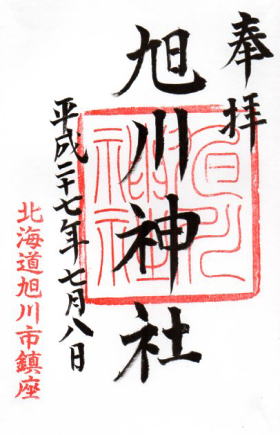 奉拝
旭川神社
平成二十七年七月八日
北海道旭川市鎮座
旭川
神社